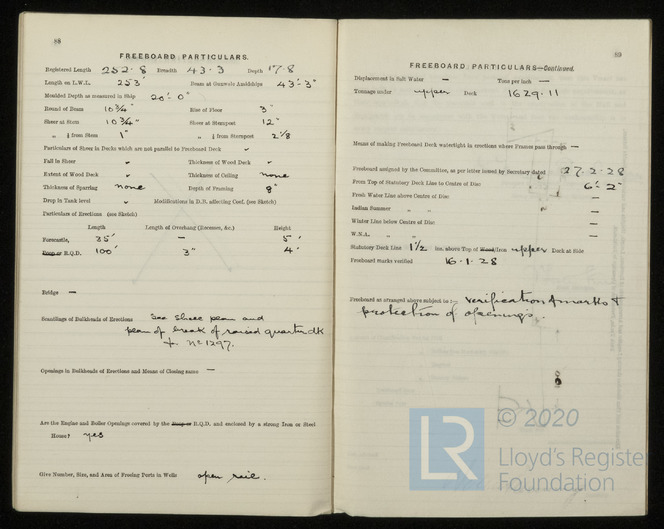 88
FREEBOARD PARTICULARS.
Registered Length 252·8 Breadth 43·3 Depth 17·8
Length on L.W.L. 253' Beam at Gunwale Amidships 43'-3"
Moulded Depth as measured in Ship 20'-0"
Round of Beam 10¾" Rise of Floor 3"
Sheer at Stem 10¾" Sheer at Sternpost 12"
„ ⅛ from Stem 1" „ ⅛ from Sternpost 2⅛
Particulars of Sheer in Decks which are not parallel to Freeboard Deck
Fall in Sheer Thickness of Wood Deck
Extent of Wood Deck Thickness of Ceiling none
Thickness of Sparring none Depth of Framing 8"
Drop in Tank level Modifications in D.B. affecting Coef. (see Sketch)
Particulars of Erections (see Sketch)
Length Length of Overhang (Recesses, &c.) Height
Forecastle, 35' — 5'
Poop or R.Q.D. 100' 3" 4'
Bridge —
Scantlings of Bulkheads of Erections See sheer plan and
plan of break of raised quarter dk
+ No 1297.
Openings in Bulkheads of Erections and Means of Closing same —
Are the Engine and Boiler Openings covered by the Poop or R.Q.D. and enclosed by a strong Iron or Steel
House? yes
Give Number, Size, and Area of Freeing Ports in Wells open rail.
89
FREEBOARD PARTICULARS—Continued.
Displacement in Salt Water — Tons per inch —
Tonnage under upper Deck 1629·11
Means of making Freeboard Deck watertight in erections where Frames pass through —
Freeboard assigned by the Committee, as per letter issued by Secretary dated 27·2·28
From Top of Statutory Deck Line to Centre of Disc 6'-2"
Fresh Water Line above Centre of Disc —
Indian Summer „ „ —
Winter Line below Centre of Disc —
W.N.A. „ „ —
Statutory Deck Line 1½ ins. above Top of Wood/Iron upper Deck at Side
Freeboard marks verified 16·1·28
Freeboard as arranged above subject to :— verification of marks &
protection of openings.
LR
© 2020
Lloyd's Register
Foundation